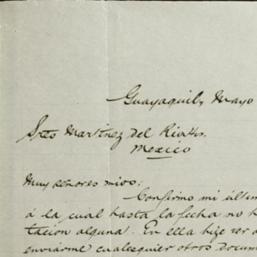 Guayaquil, Mayo
Sres Martinez del Rio Hs.
Mexico
Muy señores mios:
Confirmo mi últim
á la cual hasta la fecha no h
tación alguna. En ella hize ver a
enviárme cualesquier otros docum